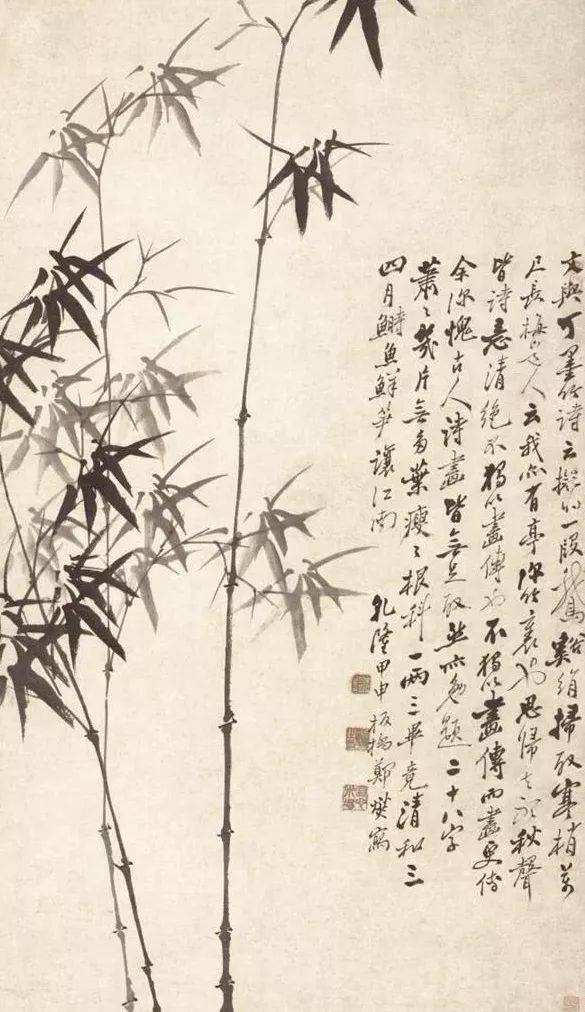 文與可墨竹詩云擬將一段鵞谿絹掃取寒梢萬
尺長梅道人云我亦有亭深竹裏也思歸去聽秋聲
皆詩意清絕不獨以畫傳也不獨以畫傳而畫更傳
余深愧古人詩畫皆無足取然亦勉題二十八字
蕭々幾片無多葉瘦々根科一兩三畢竟清和三
四月鰣魚鮮笋讓江南 乾隆甲申板橋鄭燮寫